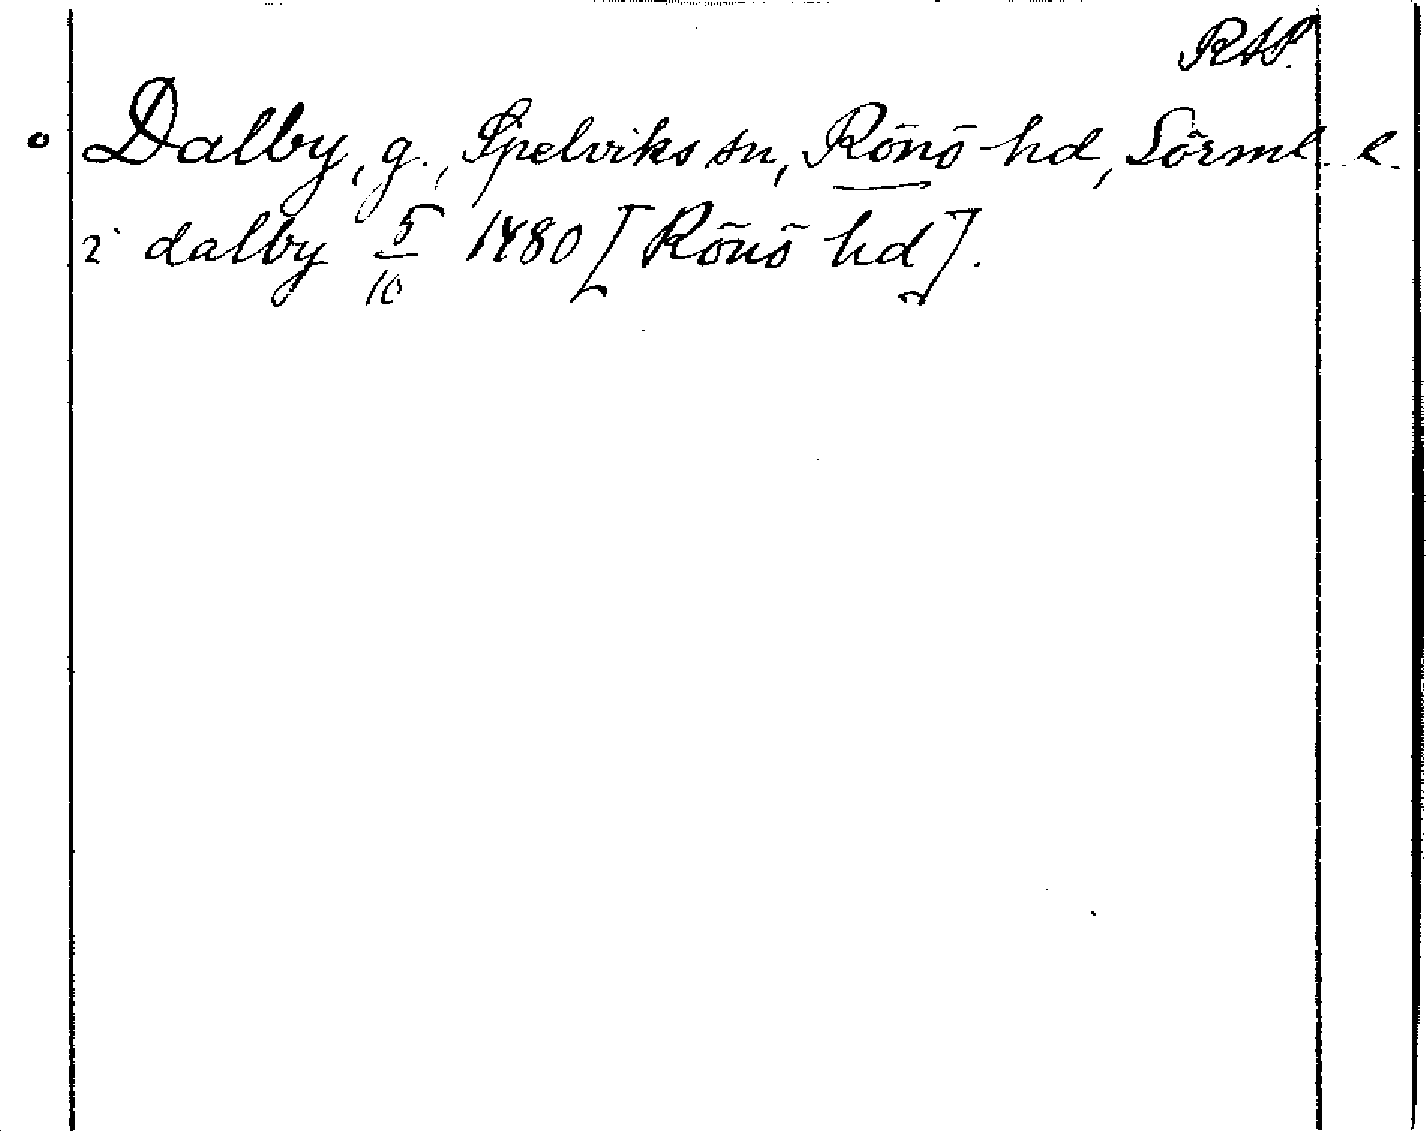 RAP.
° Dalby, g., Spelviks sn, Rönö hd, Sörml. l.
i dalby 5/10 1480 [Rönö hd].